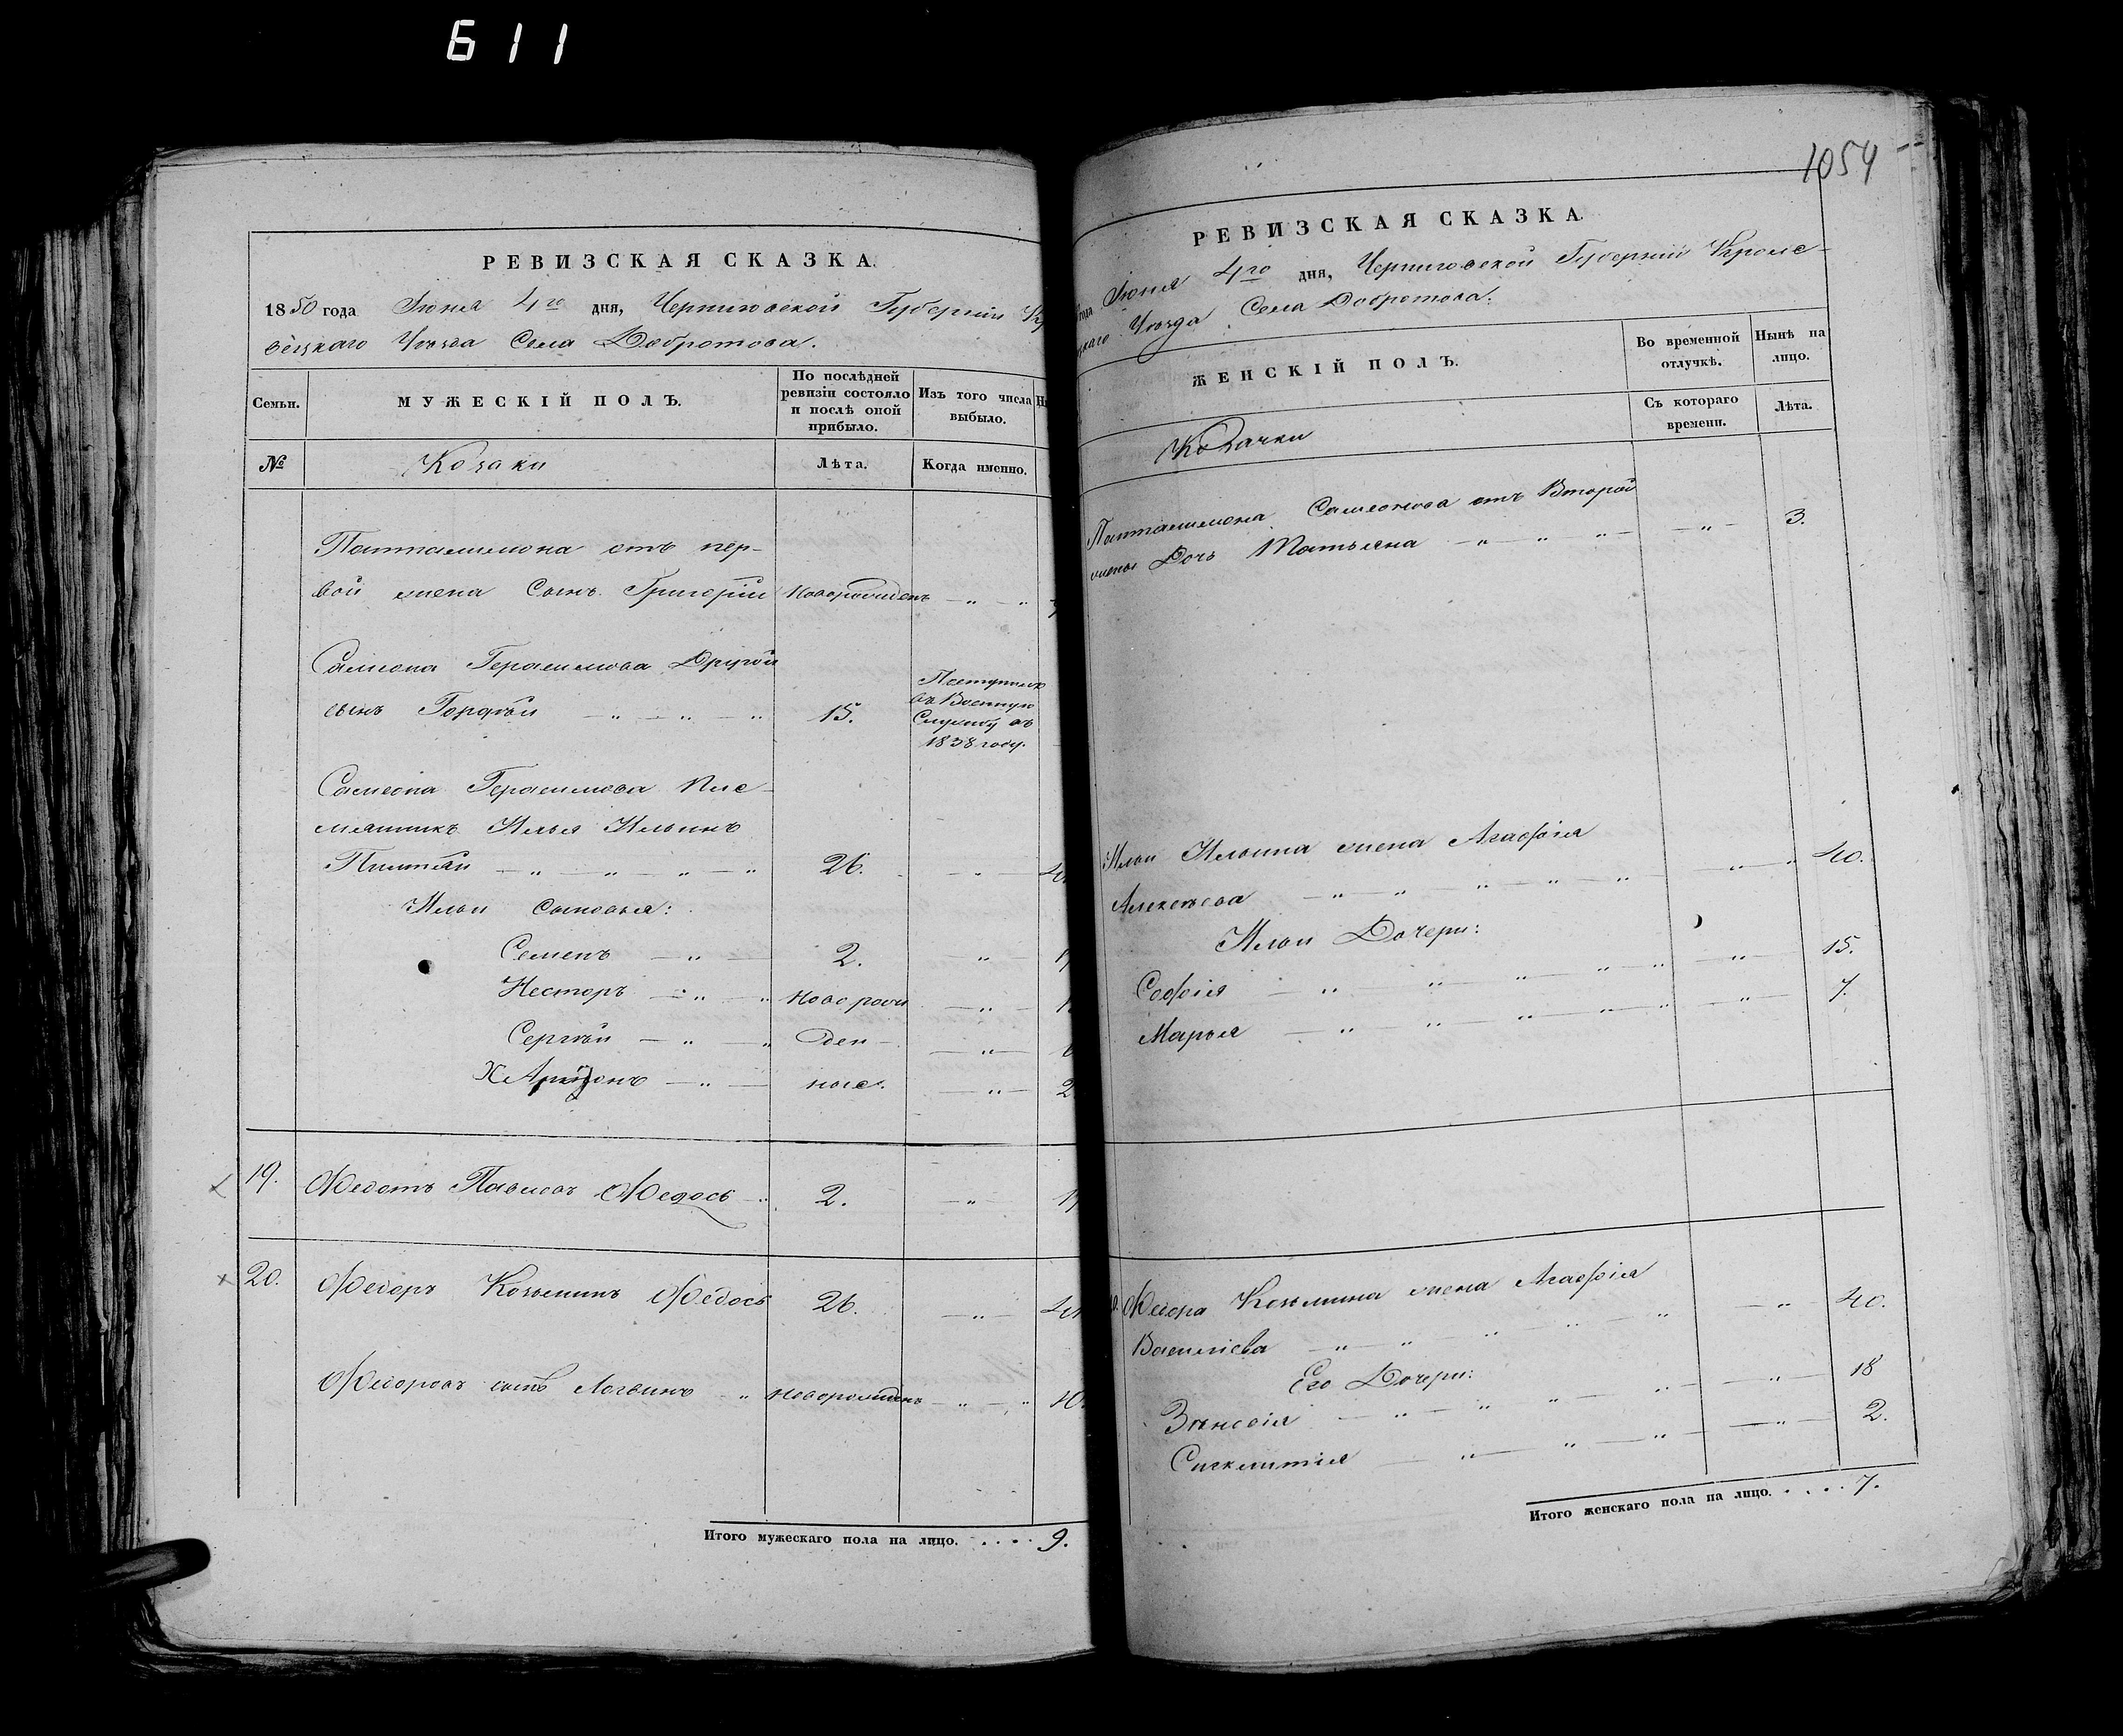 611
РЕВИЗСКАЯ СКАЗКА.
1850 года Іюня 4го дня, Черниговской Губерніи
вецкаго Уѣзда Села Добротова.
Семьи.
МУЖЕСКІЙ ПОЛЪ.
По послѣдней ревизіи состояло и послѣ оной прибыло.
Изъ того числа выбыло.
№
Козаки
Лѣта.
Когда именно.
Панталимона отъ пер-
вой жена Сынъ Григорій Новорожденъ
Самсона Герасимова Другой
сынъ Гордѣй 15.
Поступилъ
въ Военную
Службу въ
1838 году.
Самсона Герасимова Пле-
мянникъ Илья Ильинъ
26.
Ильи Сыновья:
Семенъ 2.
Несторъ Новорож
Сергѣй ден
ные.
19. Федотъ Павловъ Федось 2.
20. Федоръ Козьминъ Федось 26.
Федоровъ сынъ Логвинъ Новорожденъ 10
Итого мужескаго пола на лицо. . . . . 9.
1054
РЕВИЗСКАЯ СКАЗКА.
года Іюня 4го дня, Черниговской Губерніи Кроле-
цкаго Уѣзда Села Добротова.
ЖЕНСКІЙ ПОЛЪ.
Во временной отлучкѣ.
Нынѣ на лицо.
Съ котораго времени.
Лѣта.
Козачки
Панталимона Самсонова отъ Второй
жены Дочь Татьяна 3.
Ильи Ильина жена Агафія
Алексѣева 40.
Ильи Дочери:
Софія 15.
Марья 7.
Федора Козьмина жена Агафія
Василіева 40.
Его Дочери:
Зѣновія 18
Сигклитія 2.
Итого женскаго пола на лицо. . . . . 7.